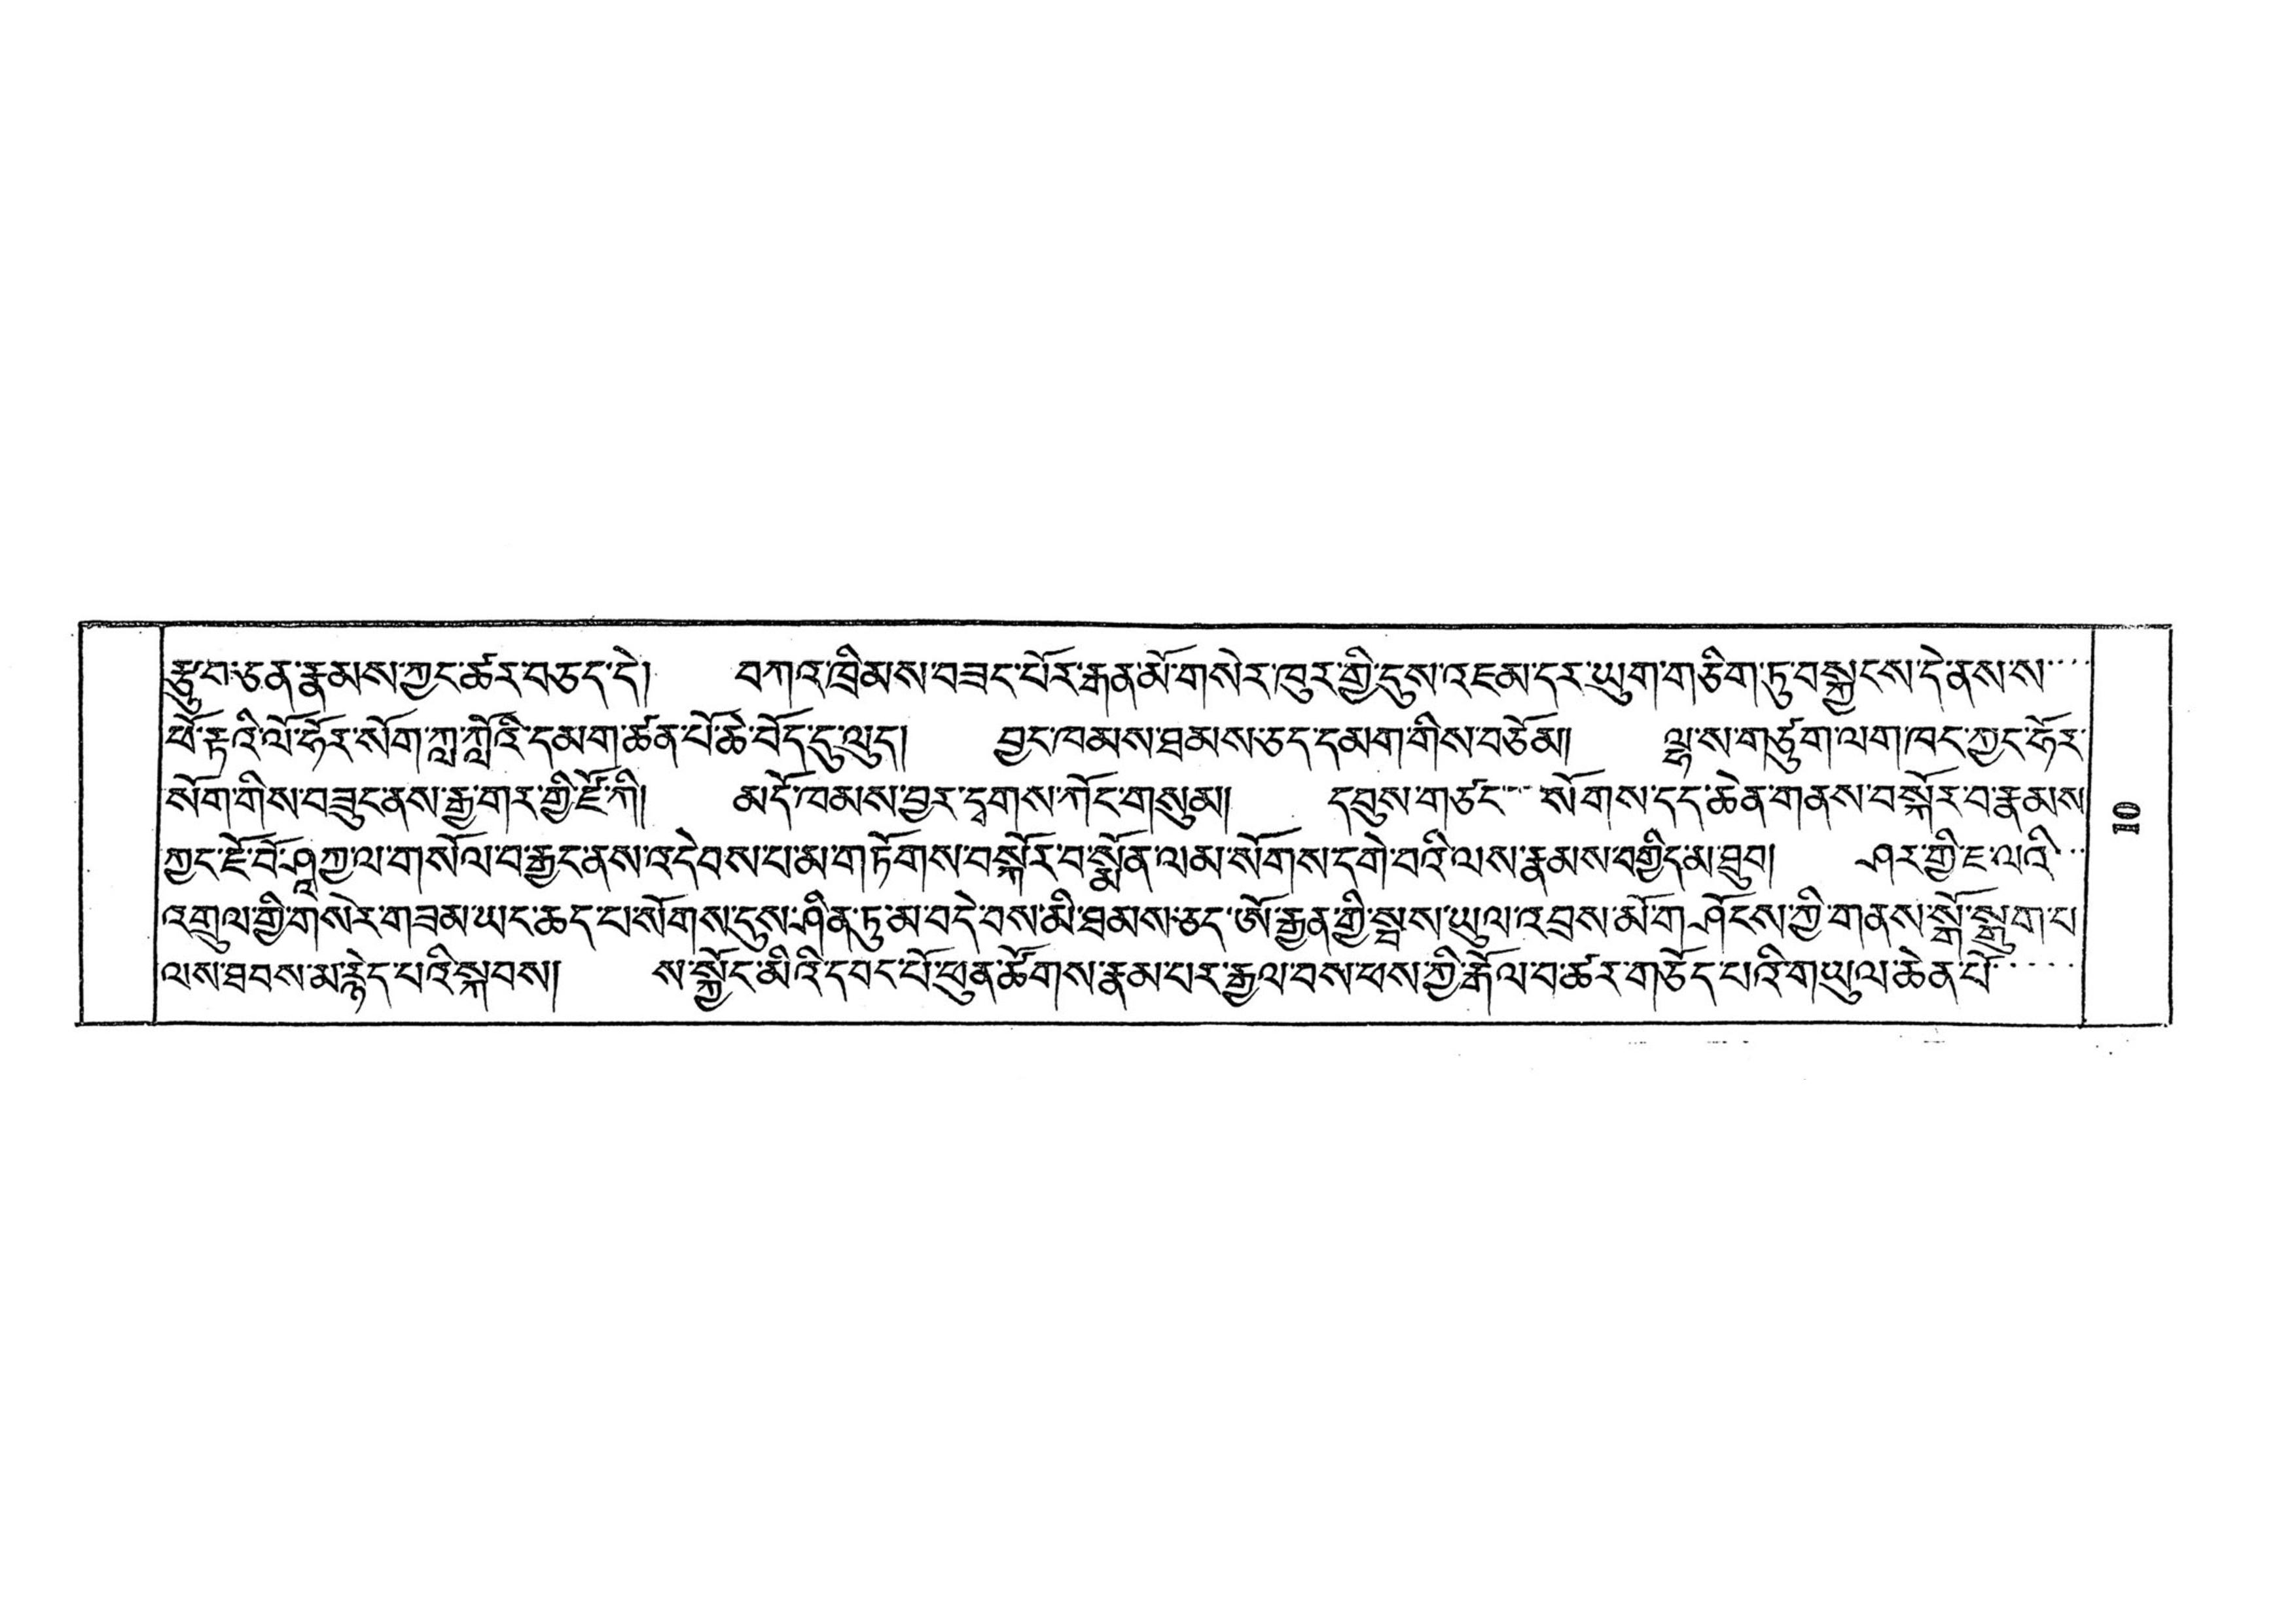 རྩུབ་ཅན་རྣམས་ཀྱང་ཚར་བཅད་དེ། བཀའ་ཁྲིམས་བཟང་པོར་རྒན་མོ་གསེར་ཁུར་གྱི་དུས་འཇམ་དར་ཡུག་གཅིག་ཏུ་བསྐྱངས་དེ་ནས་ས
ཕོ་རྟའི་ལོ་ཧོར་སོག་ཀླ་ཀློའི་དམག་ཚན་པོ་ཆེ་བོད་དུ་ལུད། བྱང་ཁམས་ཐམས་ཅད་དམག་གིས་བཅོམ། ལྷ་ས་གཙུག་ལག་ཁང་ཀྱང་ཧོར་
སོག་གིས་བཟུང་ནས་རྒྱ་གར་གྱི་ཛོ་ཀི། མདོ་ཁམས་བྱར་དྭགས་ཀོང་གསུམ། དབུས་གཙང་ སོགས་དད་ཆེན་གནས་བསྐོར་བ་རྣམས
ཀྱང་ཇོ་བོ་ཤཱཀྱ་ལ་གསོལ་བ་རྒྱང་ནས་འདེབས་པ་མ་གཏོགས་བསྐོར་བ་སྨོན་ལམ་སོགས་དགེ་བའི་ལས་རྣམས་བགྱིད་མ་ཐུབ། ཤར་གྱི་ཇ་ལའི་
འགྲུལ་གྱི་གསེར་གཟམ་ཡང་ཆད་པ་སོགས་དུས་ཤིན་ཏུ་མ་བདེ་བས་མི་ཐམས་ཅད་ཨོ་རྒྱན་གྱི་སྦས་ཡུལ་འབྲས་མོག་ཤོངས་ཀྱི་གནས་སྒོ་སྒྲུག་པ
ལས་ཐབས་མ་རྙེད་པའི་སྐབས། ས་སྐྱོང་མིའི་དབང་པོ་ཕུན་ཚོགས་རྣམ་པར་རྒྱལ་བས་ཕས་ཀྱི་རྒོལ་བ་ཚར་གཅོད་པའི་གཡུལ་ཆེན་པོ